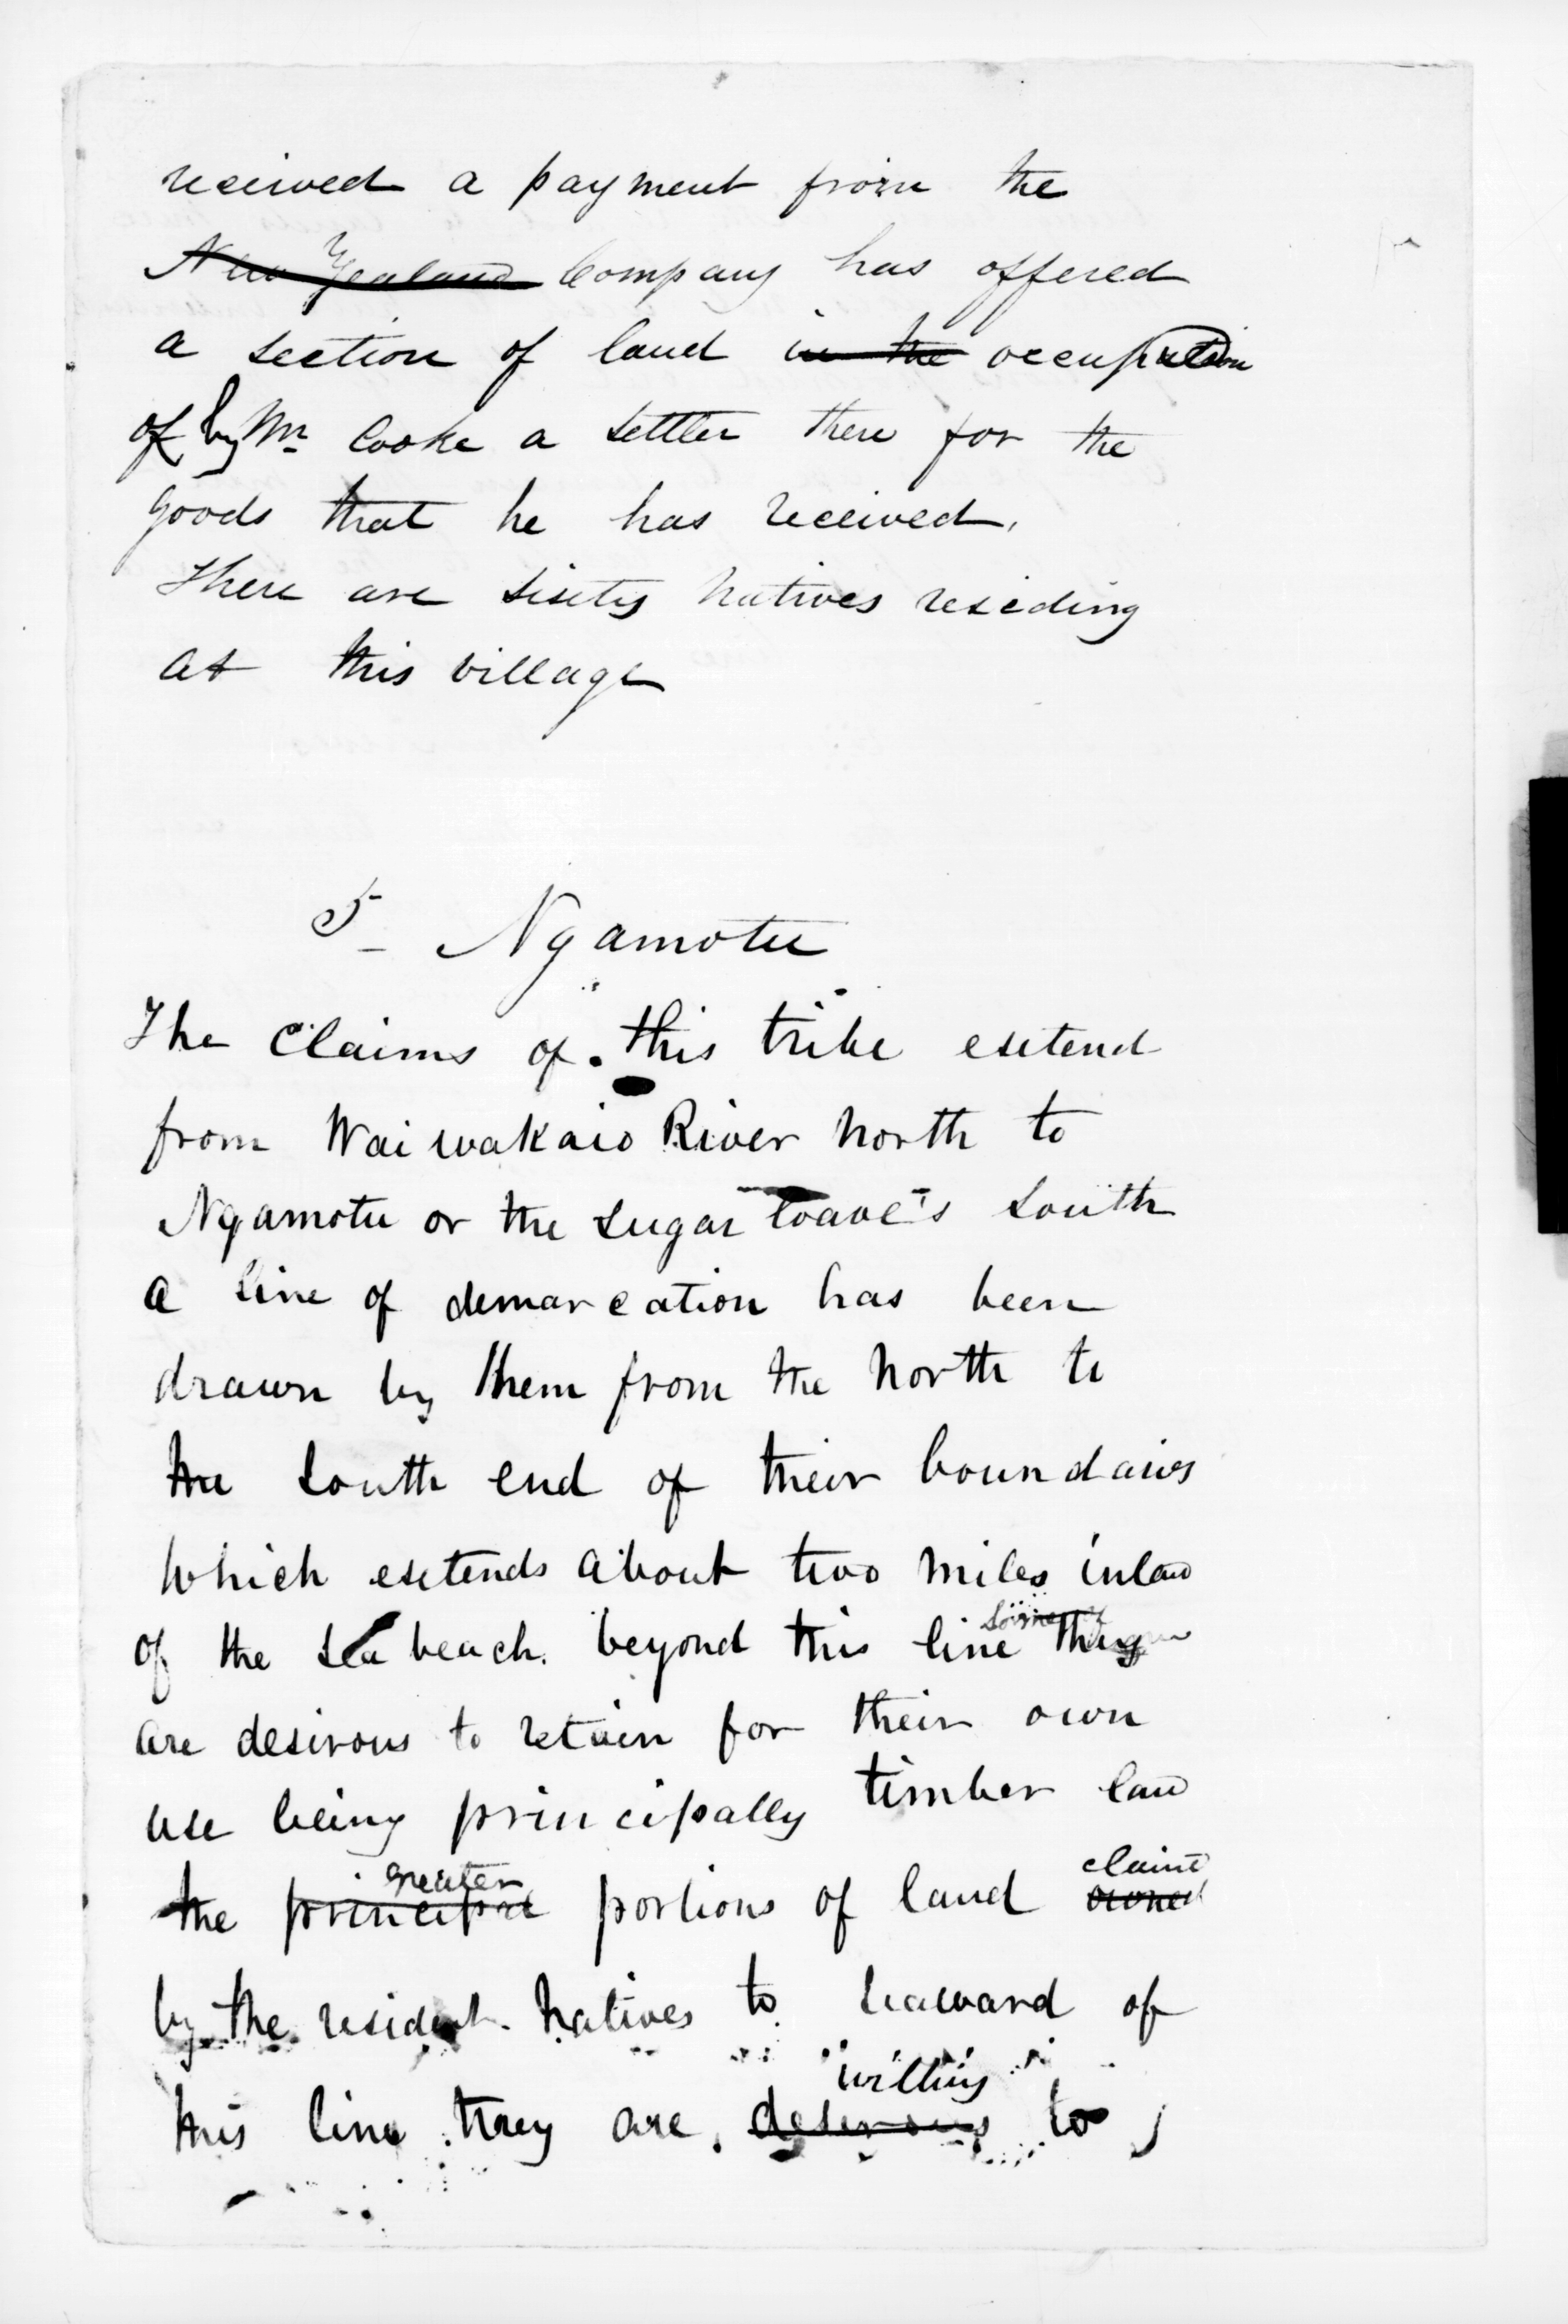 received a payment from the
New Zealand Company has offered
a section of land in the occupation
of by Mr Cooke a settler there for the
goods that he has received.
There are sixty natives residing
at this village
5 - Ngamotu
The Claims of this tribe extend
from Waiwakaio River North to
Ngamotu or the Sugar loave's South
a line of demarcation has been
drawn by them from the North to
the South end of their boundaries
Which extends about two miles inland
of the sea beach. beyond this line they
are desirous to retain for their own
use being principally timber land
greater claimed
the principal portions of land owned
by the resident natives to seaward of
willing
this line they are desirous to